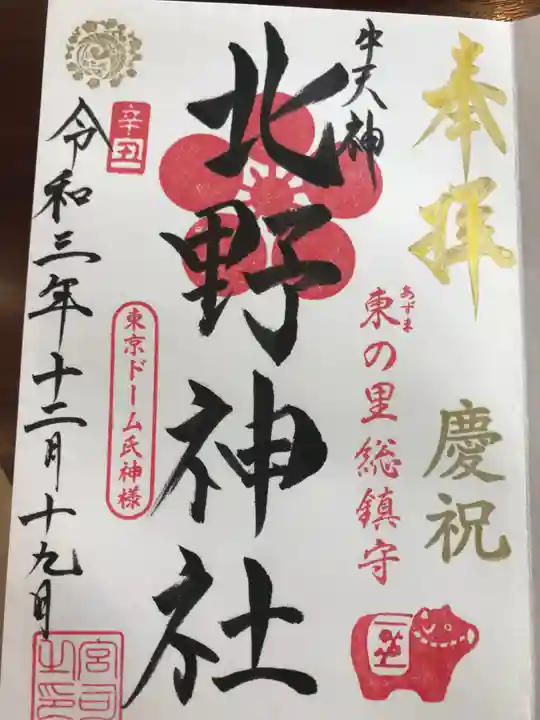 奉拝
慶祝
牛天神
あずま
東の里総鎮守
北野神社
辛丑
東京ドーム氏神様
令和三年十二月十九日
宮司之印